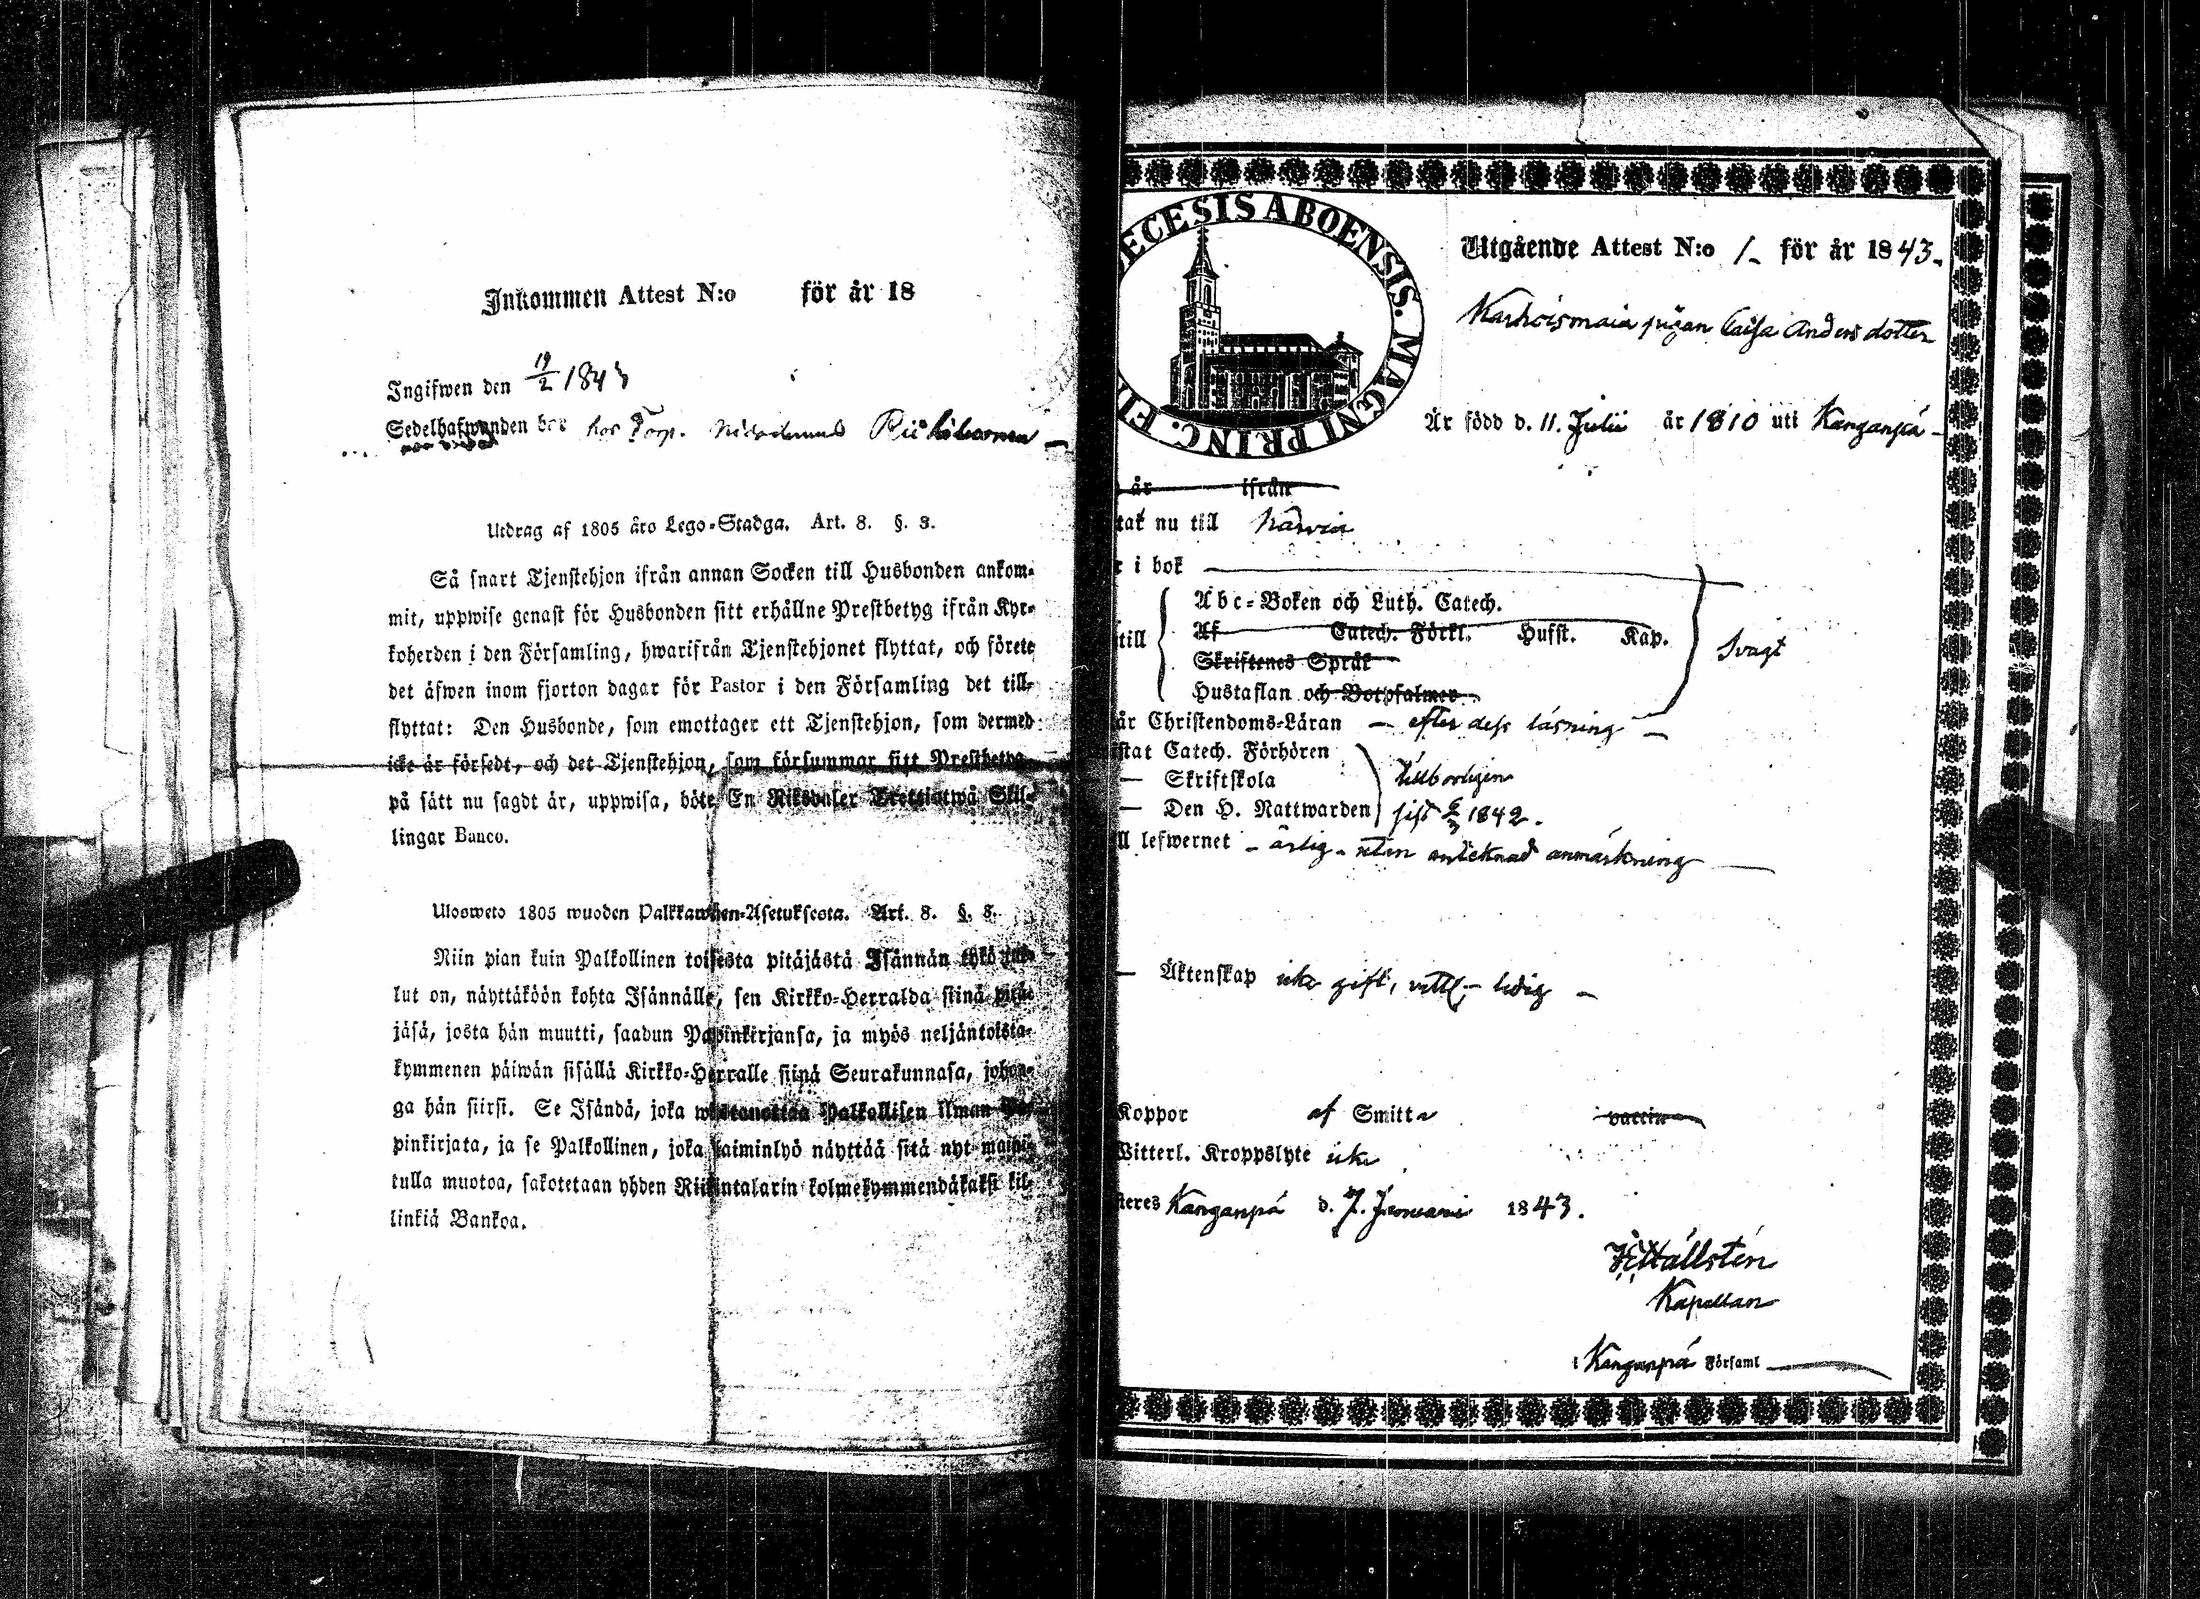 Inkommen Attest N:o för år 18
Ingifwen den 19/2 1843
Sedelhafwanden bor hos Torp.
Utdrag af 1805 års Lego-Stadga. Art. 8. §. 3.
Så snart Tjenstehjon ifrån annan Socken till Husbonden ankom-
mit, uppwise genast för Husbonden sitt erhållne Prestbetyg ifrån Kyr-
koherden i den Församling, hwarifrån Tjenstehjonet flyttat, och förete
det äfwen inom fjorton dagar för Pastor i den Församling det till-
flyttat: Den Husbonde, som emottager ett Tjenstehjon, som dermed
icke är försedt, och det Tjenstehjon, som försummar sitt Prestbetyg
på sätt nu sagdt är, uppwisa, böte En Riksdaler Trettiotwå Skil-
lingar Banco.
Ulosweto 1805 wuoden Palkkawäen-Asetuksesta. Art. 8. §. 3.
Niin pian kuin Palkollinen toisesta pitäjästä Isännän tykö tul-
lut on, näyttäköön kohta Isännälle, sen Kirkko-Herralda siinä pitä-
jäsä, josta hän muutti, saadun Papinkirjansa, ja myös neljäntoista-
kymmenen päiwän sisällä Kirkko-Herralle siinä Seurakunnasa, johon-
ga hän siirsi. Se Isändä, joka wastanottaa Palkollisen ilman Pa-
pinkirjata, ja se Palkollinen, joka laiminlyö näyttää sitä nyt maini-
tulla muotoa, sakotetaan yhden Riikintalarin kolmekymmendäkaksi kil-
linkiä Bankoa.
ECESIS ABOENSIS. MAGNI PRINC. F
Utgående Attest N:o 1 för år 1843.
pigan Caisa Anders dotter
Är född d. 11. Julii år 1810 uti Kanganpä
år ifrån
tat nu till Närvin
r i bok
till Abc-Boken och Luth. Catech.
Af Catech. Förkl. Husst. Kap.
Skriftenes Språk
Hustaflan och Botpsalmer
Svagt
är Christendoms-Läran - efter dess läsning -
istat Catech. Förhören
— Skriftskola tillbörligen
— Den H. Nattwarden sist 1842.
ll lefwernet - ärlig - utan antecknad anmärkning
— Äktenskap icke gift, vittl; - ledig -
Koppor af Smitta vaccin
Witterl. Kroppslyte icke
steres Kanganpä d. 7. Januarii 1843.
Hällstén
Kapellan
i Kanganpä Församl